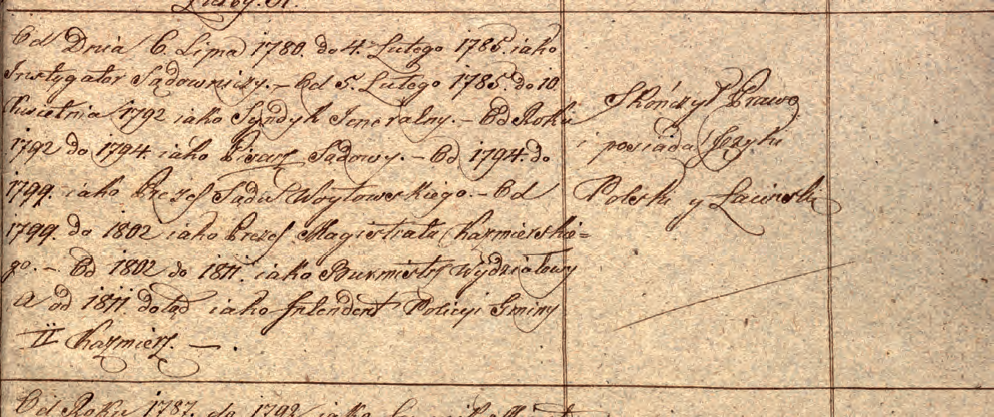 Od Dnia 6. Lipna 1780. do 4. Lutego 1785. iako
Instygator Sądowniczy. – Od 5. Lutego 1785. do 10.
Kwietnia 1792 iako Syndyk Jeneralny. – Od Roku
1792 do 1794. iako Pisarz Sądowy. – Od 1794. do
1799. iako Prezes Sądu Woytowskiego. – Od
1799. do 1802 iako Prezes Magistratu Kazmiersko=
go. – Od 1802 do 1811. iako Burmistrz Wydziałowy
a od 1811. dotąd iako Intendent Policyi Gminy
II Kazmierz. – .
Skończył Prawo
i posiada Języki
Polski y Łaciński
Od Roku 1787. do 1792 iako